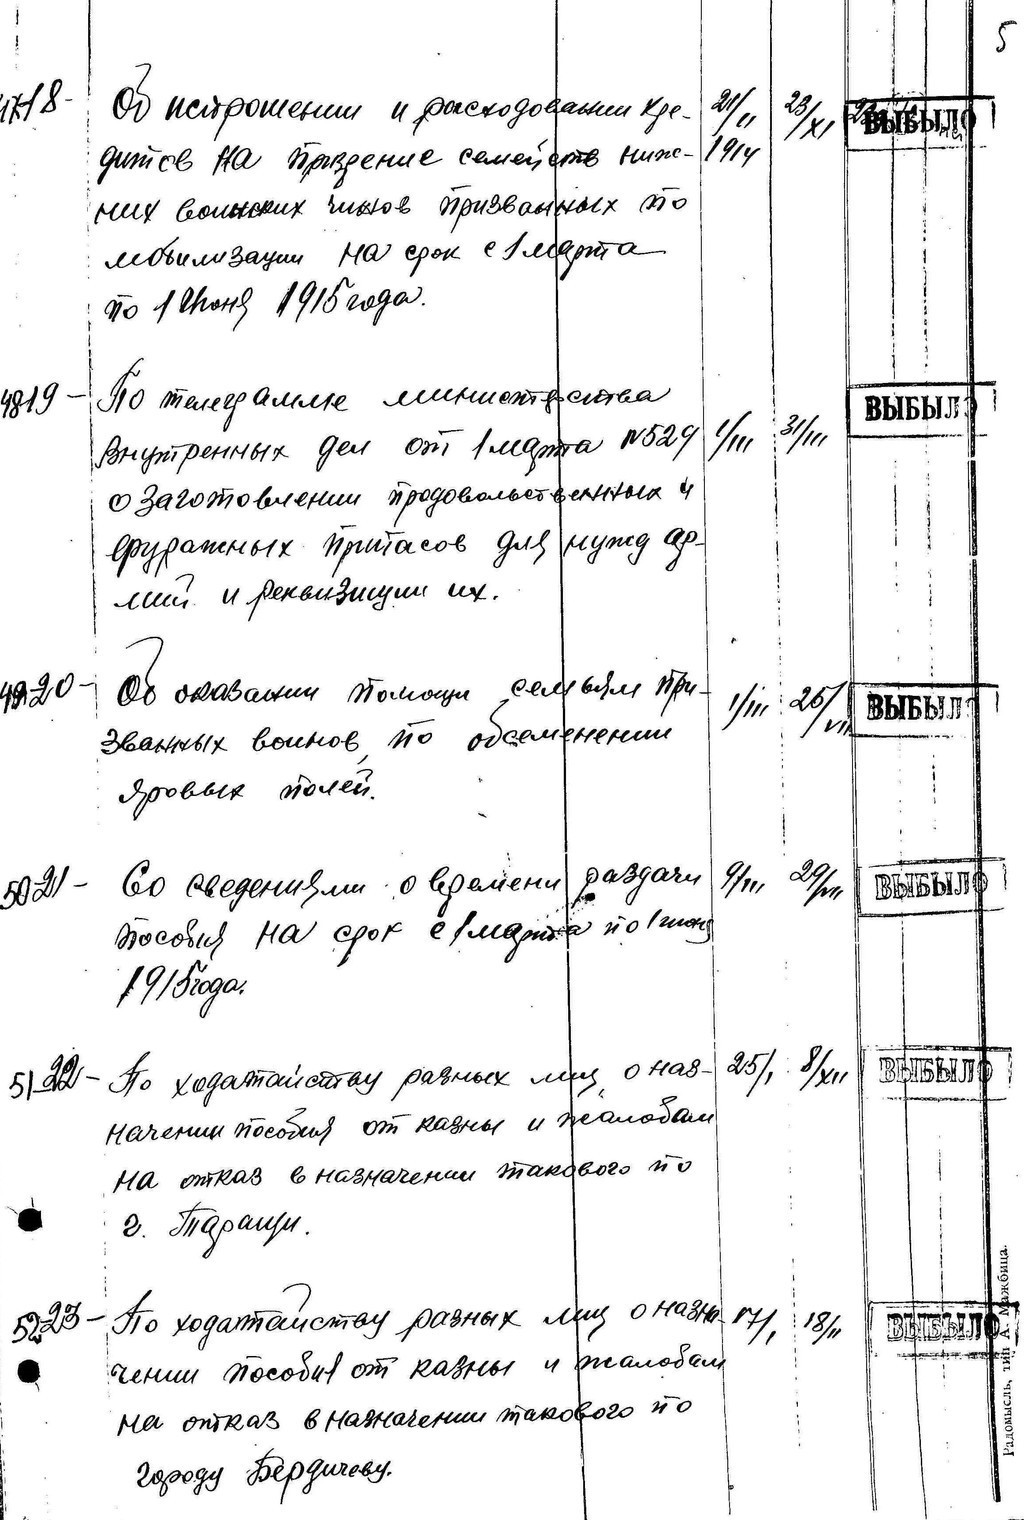 5
47-18- Об испрошении и расходовании кре- 21/II 23/XI ВЫБЫЛО
дитов на призрение семейств ниж- 1914
них воинских чинов призванных по
мобилизации на срок с 1 марта
по 1 Июня 1915 года.
48 19 - По телеграмме министерства ВЫБЫЛО
внутренных дел от 1 марта №529 1/III 31/III
о заготовлении продовольственных и
фуражных припасов для нужд ар-
мий и реквизиции их.
49-20- Об оказании помощи семьям при- 1/III 26/VII ВЫБЫЛО
званных воинов по обсеменении
яровых полей.
50-21- Со сведениями о времени раздачи 9/III 29/VII ВЫБЫЛО
пособия на срок с 1 марта по 1 июня
1915 года.
51-22- По ходатайству разных лиц о наз- 25/I 8/XII ВЫБЫЛО
начении пособия от казны и жалобам
на отказ в назначении такового по
г. Таращи.
52-23- По ходатайству разных лиц о назна- 17/I 18/II ВЫБЫЛО
чении пособия от казны и жалобам
на отказ в назначении такового по
городу Бердичеву.
Радомысль, тип А. Мажбица.